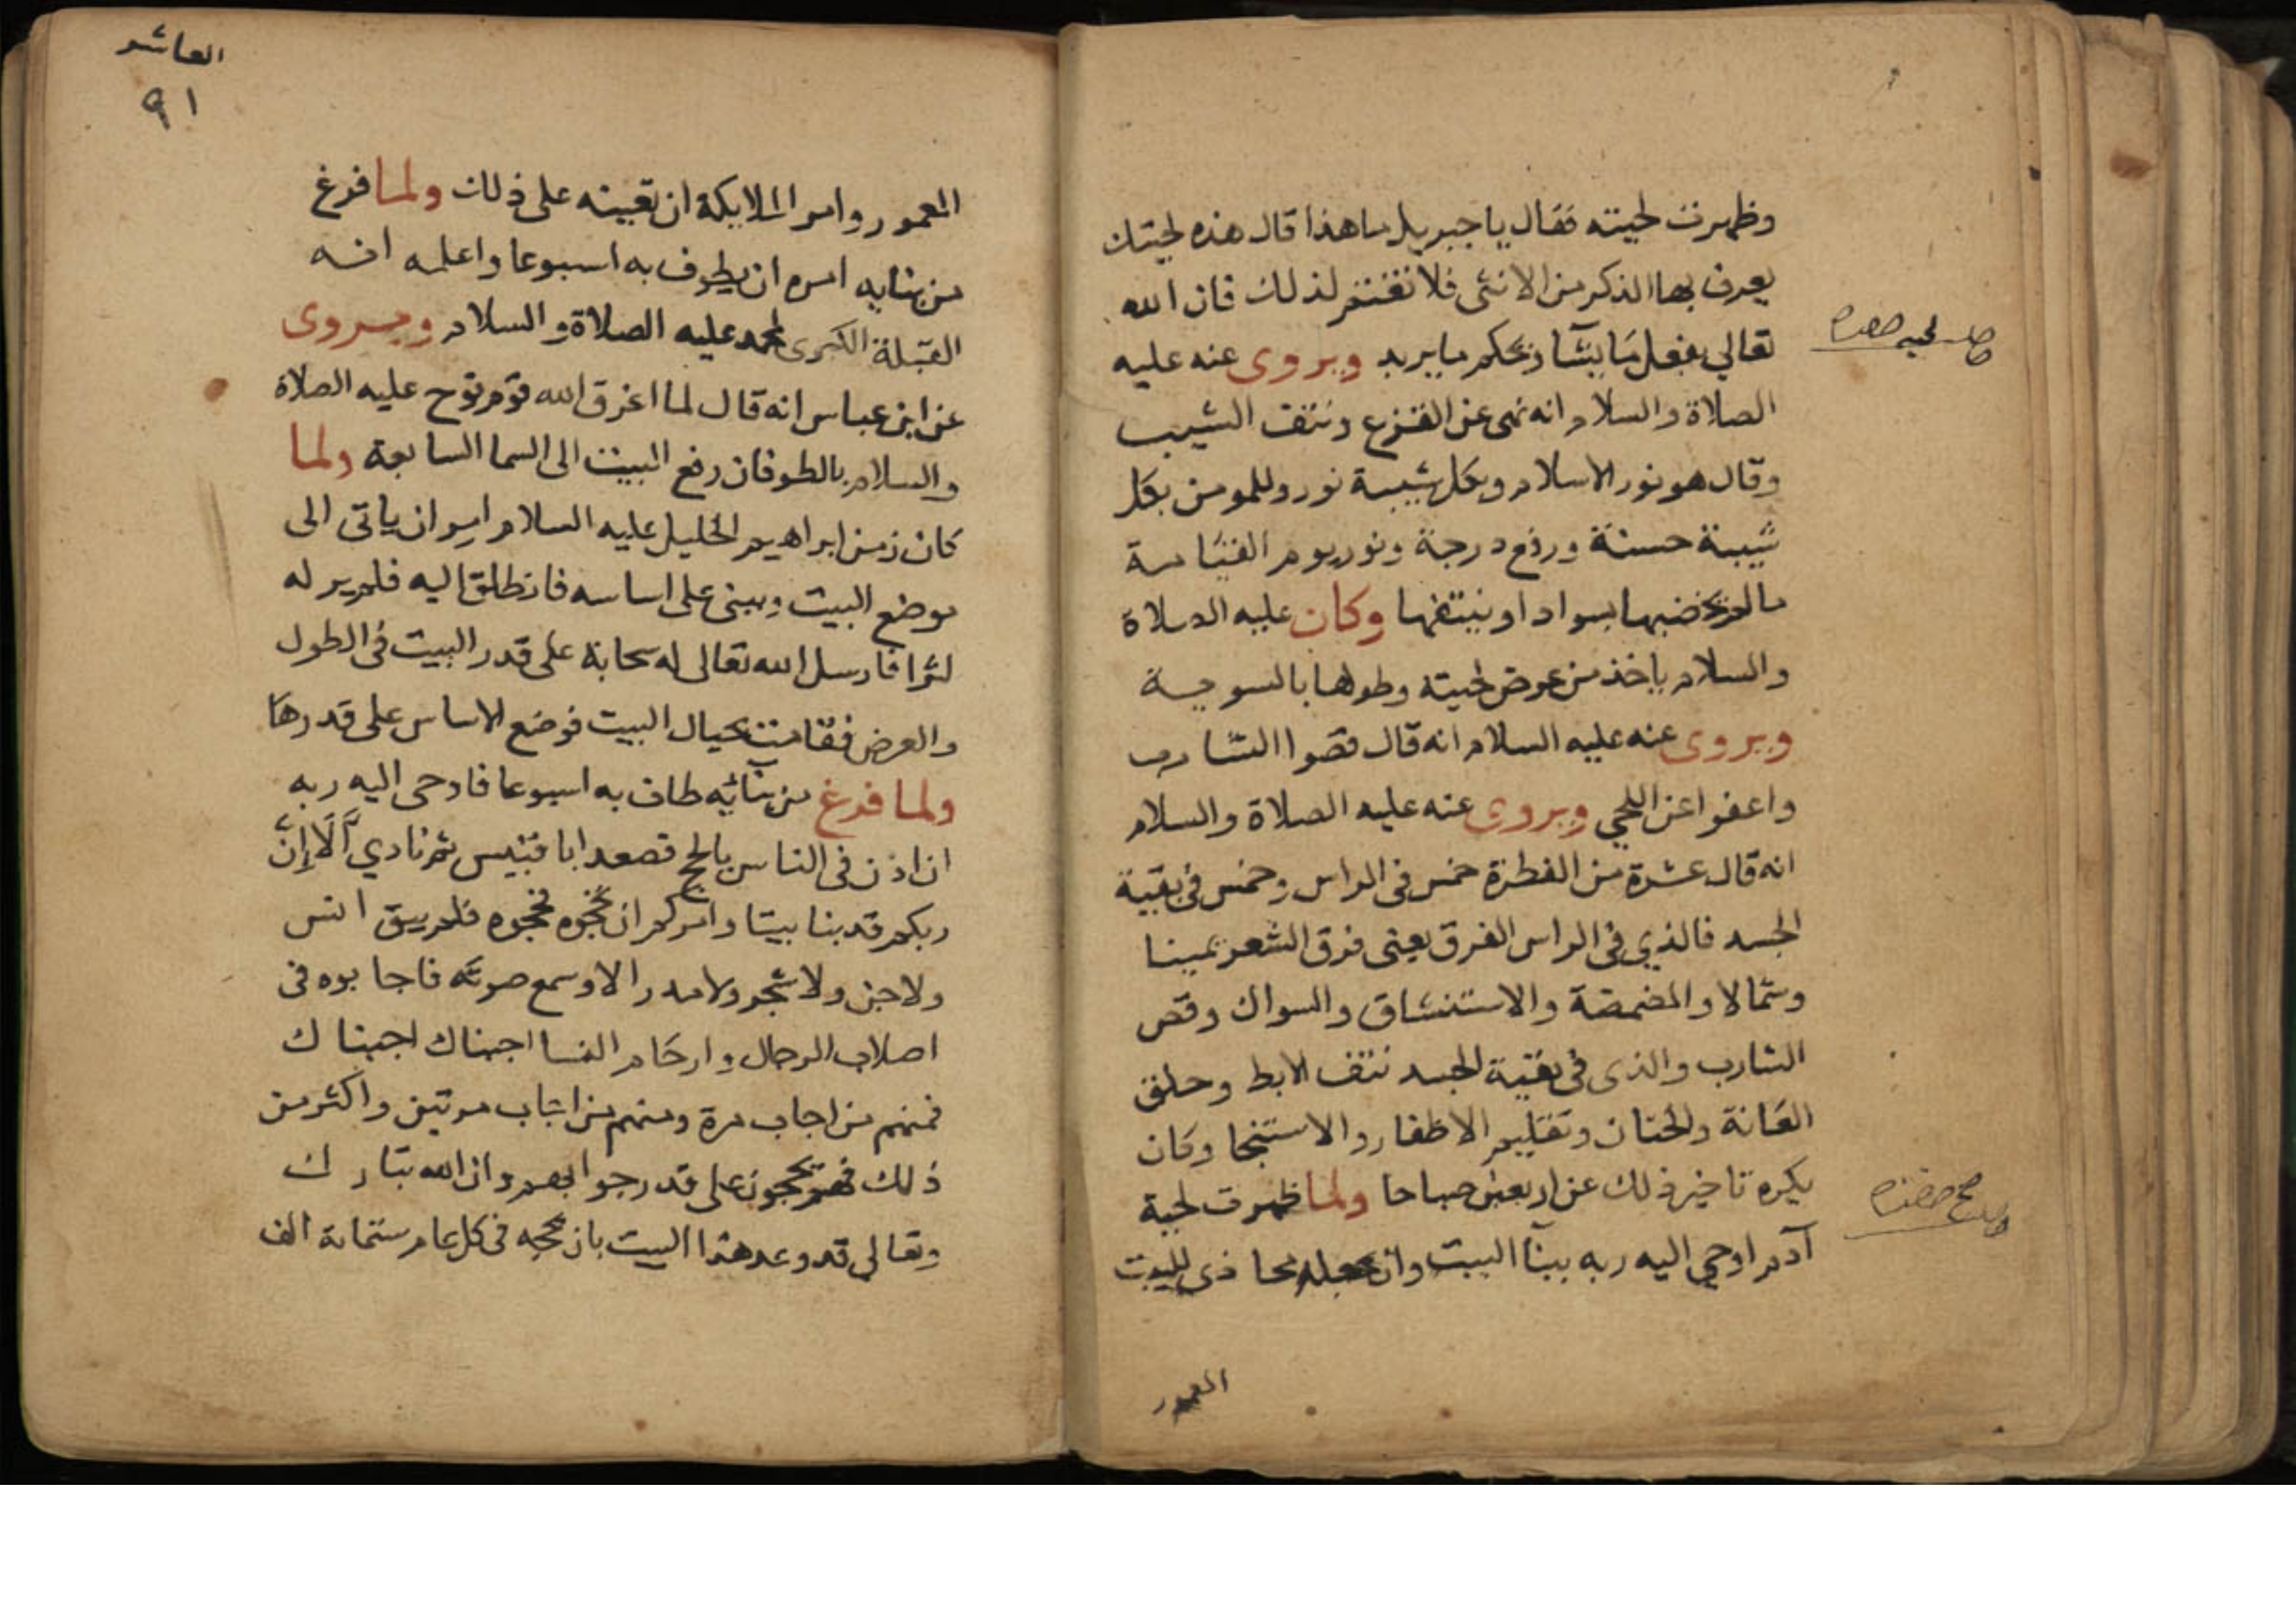 وظهرت لحيته فقال يا جبريل ما هذا قال هذه لحيتك
يعرف بها الذكر من الانثى فلا تغتم لذلك فان الله
تعالي يفعل ما يشا ويحكم ما يريد ويروى عنه عليه
الصلاة والسلام انه نهى عن القزع ونتف الشيب
وقال هو نور الاسلام وبكل شيبة نور وللمومن بكل
شيبة حسنة ورفع درجة ونور يوم القيامة
ما لم يخضبها بسواد او ينتفها وكان عليه الصلاة
والسلام ياخذ من عرض لحيته وطولها بالسوية
ويروى عنه عليه السلام انه قال قصوا الشارب
واعفوا عن اللحي ويروى عنه عليه الصلاة والسلام
انه قال عشرة من الفطرة خمس فى الراس وخمس فى بقية
الجسد فالذي فى الراس الفرق يعنى فرق الشعر يمينا
وشمالا والمضمضة والاستنشاق والسواك وقص
الشارب والذى فى بقية الجسد نتف الابط وحلق
العانة والختان وتقليم الاظفار والاستنجا وكان
يكره تاخير ذلك عن اربعين صباحا ولما ظهرت لحية
آدم اوحي اليه ربه ببنآ البيت وان يجعله محاذى للبيت
المعمور
العاشر
٩١
المعمور وامر الملايكة ان تعينه على ذلك ولما فرغ
من بنايه امره ان يطوف به اسبوعا واعلمه انه
القبلة الكبرى لمحمد عليه الصلاة والسلام ويروى
عن ابن عباس انه قال لما اغرق الله قوم نوح عليه الصلاة
والسلام بالطوفان رفع البيت الى السما السابعة ولما
كان زمن ابراهيم الخليل عليه السلام امر ان ياتى الى
موضع البيت ويبنى على اساسه فانطلق اليه فلم ير له
اثرا فارسل الله تعالى له سحابة على قدر البيت فى الطول
والعرض فقامت بحيال البيت فوضع الاساس على قدرها
ولما فرغ من بنآئه طاف به اسبوعا فاوحى اليه ربه
ان اذن فى الناس بالحج فصعد ابا قبيس ثم نادي ألَا إِنَّ
ربكم قد بنا بيتا وامركم ان تحجوه فحجوه فلم يبق انس
ولا جن ولا شجر ولا مدر الا وسمع صوته فاجابوه فى
اصلاب الرجال وارحام النسا اجبناك اجبناك
فمنهم من اجاب مرة ومنهم من اجاب مرتين واكثر من
ذلك فهم يحجون على قدر جوابهم وان الله تبارك
وتعالي قد وعد هذا البيت بان يحجه فى كل عام ستماية الف